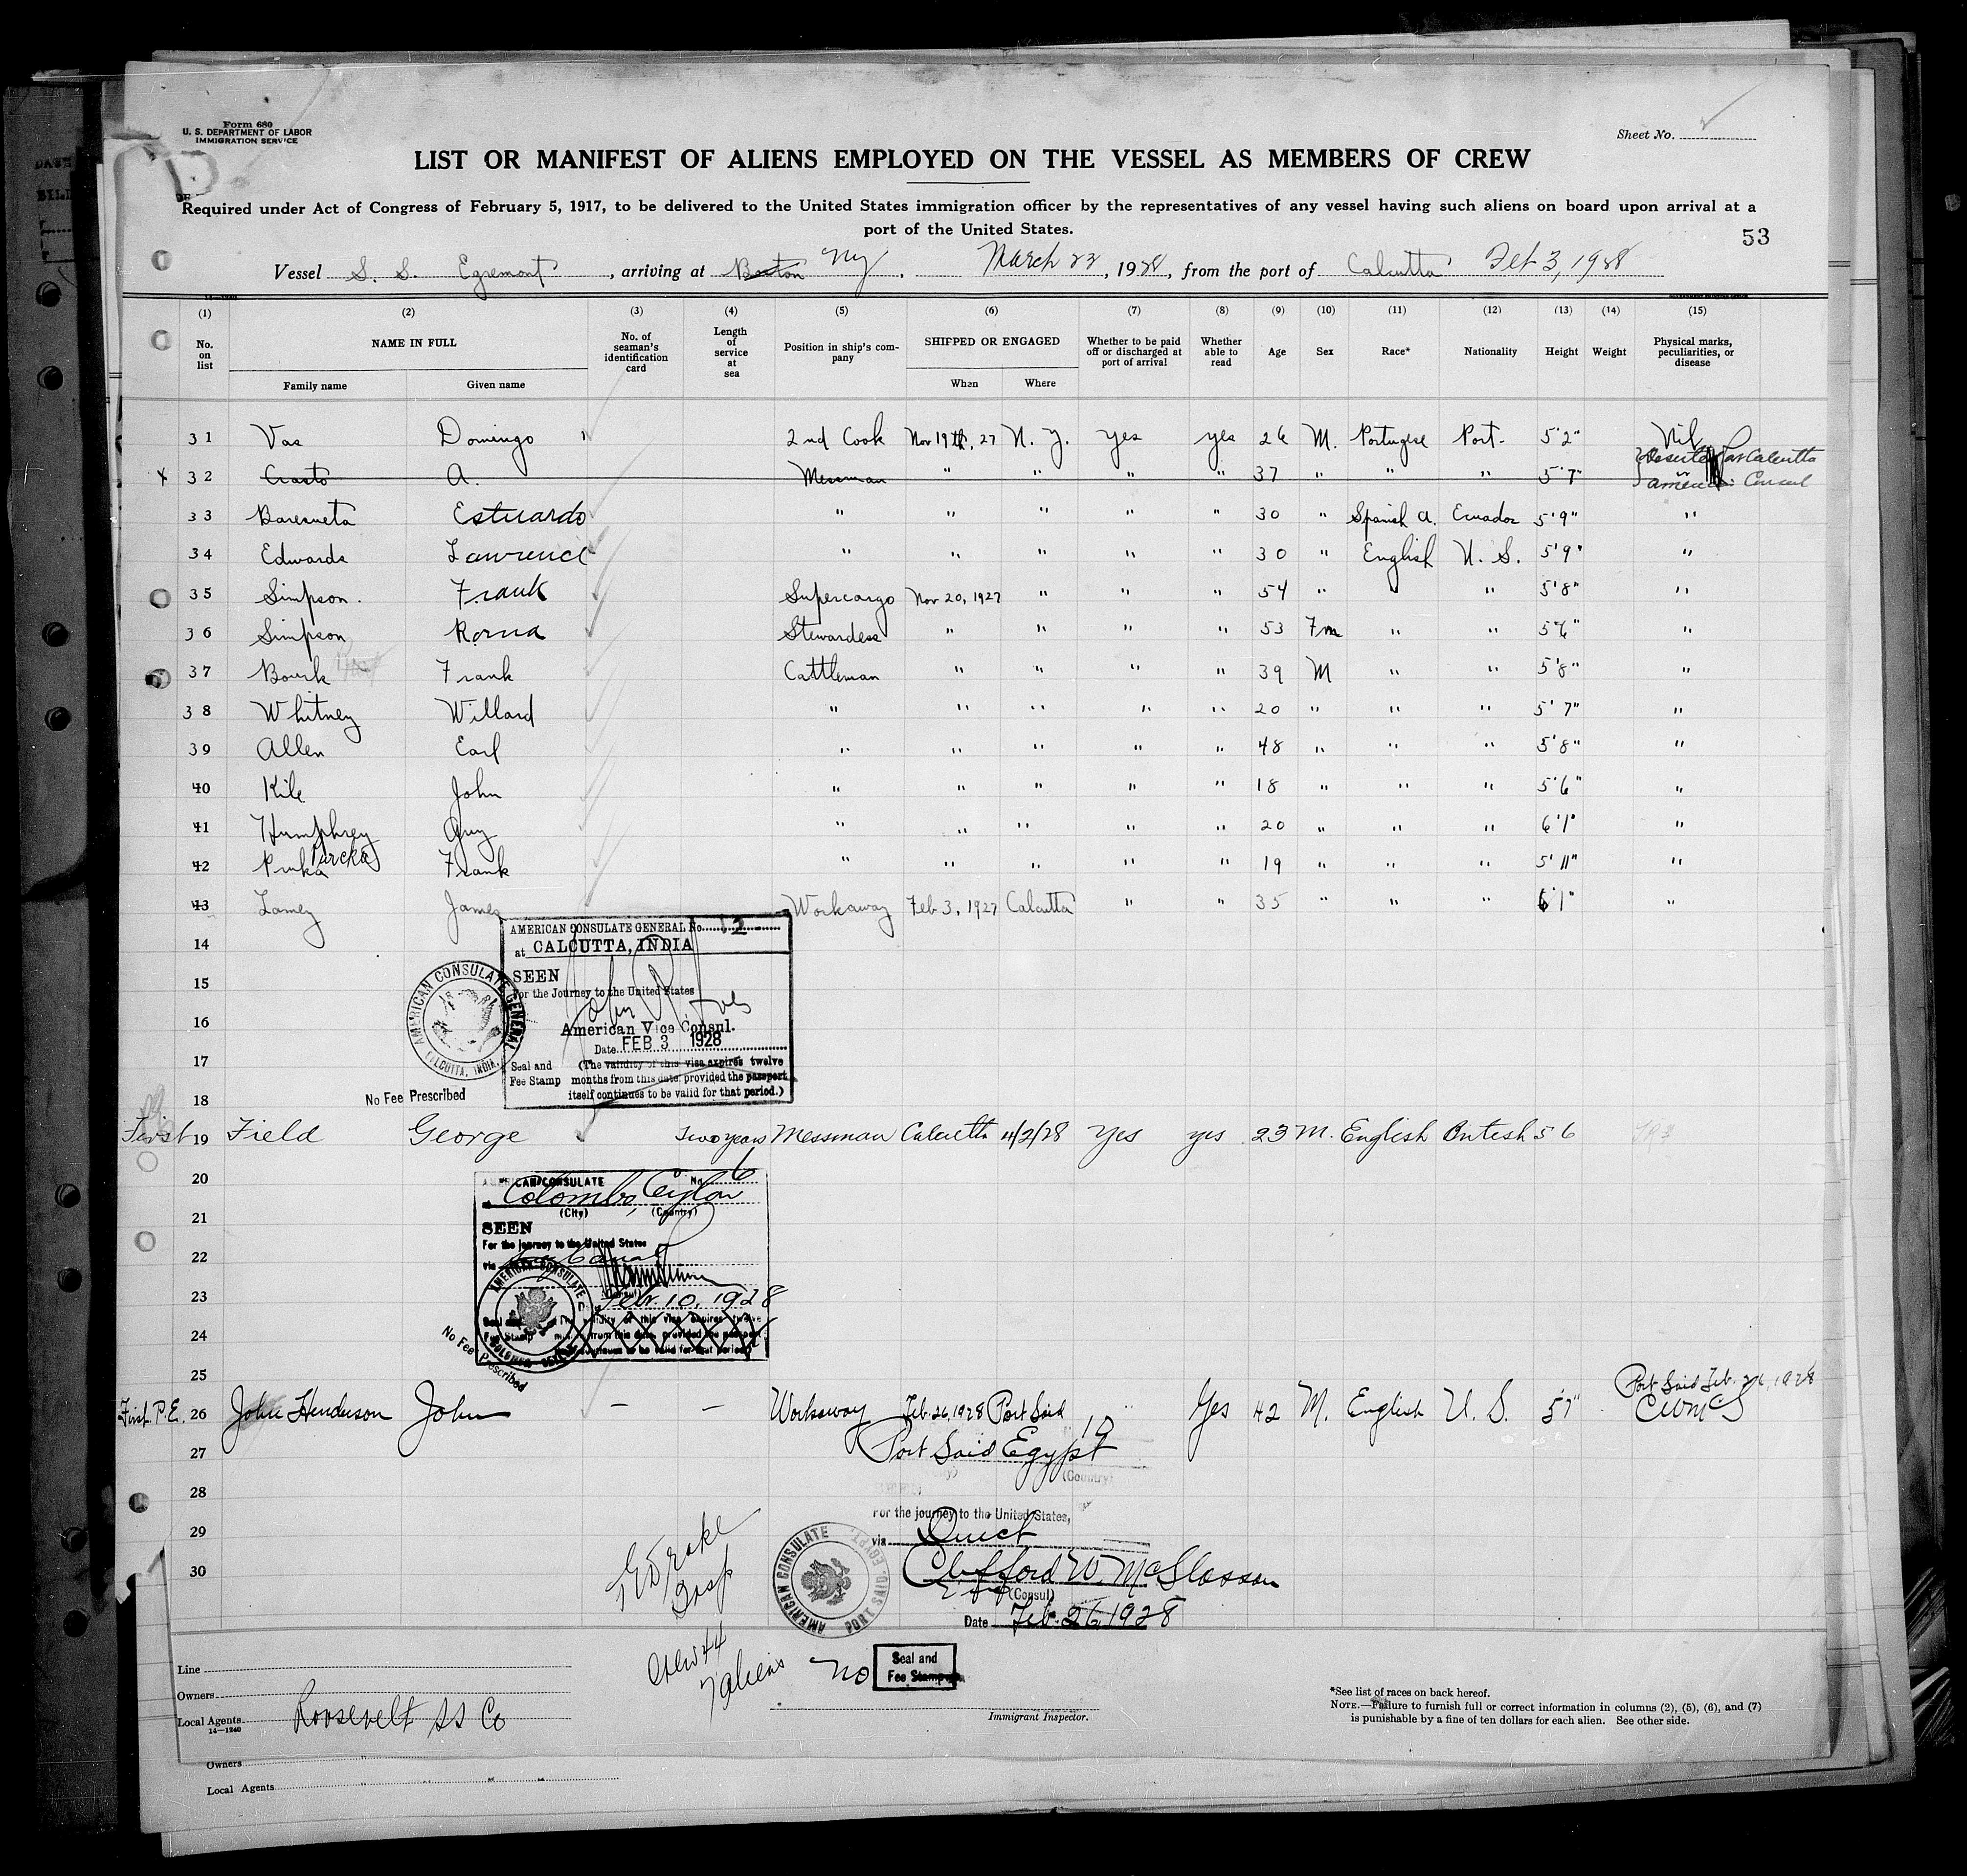 Form 680
U. S. DEPARTMENT OF LABOR
IMMIGRATION SERVICE
Sheet No.
LIST OR MANIFEST OF ALIENS EMPLOYED ON THE VESSEL AS MEMBERS OF CREW
Required under Act of Congress of February 5, 1917, to be delivered to the United States immigration officer by the representatives of any vessel having such aliens on board upon arrival at a
port of the United States.
53
Vessel S. S. Egremont, arriving at Boston NY. March 22, 1928, from the port of Calcutta Feb 3, 1928
(1) (2) (3) (4) (5) (6) (7) (8) (9) (10) (11) (12) (13) (14) (15)
No. on list NAME IN FULL No. of seaman's identification card Length of service at sea Position in ship's company SHIPPED OR ENGAGED Whether to be paid off or discharged at port of arrival Whether able to read Age Sex Race* Nationality Height Weight Physical marks, peculiarities, or disease
Family name Given name When Where
31 Vas Domingo 2nd Cook Nov 19th, 27 N. Y. Yes yes 26 M. Portugese Port. 5'2" Nil
x 32 Crasto A. Messman " " " " 37 " " " 5'7" Deserted at Calcutta
Consul
33 Estuardo " " " " " 30 " Spanish A. Ecuador 5'9" "
34 Edwards Lawrence " " " " " 30 " English U. S. 5'9" "
35 Simpson. Frank Supercargo Nov 20, 1927 " " " 54 " " " 5'8" "
36 Simpson Stewardess " " " " 53 Fm " " 5'6" "
37 Bourk Frank Cattleman " " " " 39 M " " 5'8" "
38 Whitney Willard " " " " " 20 " " " 5'7" "
39 Allen Earl " " " " " 48 " " " 5'8" "
40 Kile John " " " " " 18 " " " 5'6" "
41 Humphrey Guy " " " " " 20 " " " 6'1" "
42 Frank " " " " " 19 " " " 5'11" "
43 Lamey James Workaway Feb 3, 1927 Calcutta " " 35 " " " 6'1" "
14
AMERICAN CONSULATE GENERAL No. 12
at CALCUTTA, INDIA
SEEN
For the Journey to the United States
American Vice Consul.
Date FEB 3 1928
Seal and Fee Stamp
(The validity of this visa expires twelve
months from this date, provided the passport
itself continues to be valid for that period.)
AMERICAN CONSULATE GENERAL
CALCUTTA, INDIA.
No Fee Prescribed
15
16
17
18
First 19 Field George Two years Messman Calcutta 4/2/28 Yes yes 23 M. English British 5 6
20
AMERICAN CONSULATE No. 6
Colombo, Ceylon
(City) (Country)
SEEN
For the journey to the United States
via
(Consul)
Feb. 10, 1928
AMERICAN CONSULATE
No Fee Prescribed
21
22
23
24
25
Port Said Feb. 26, 1928
First P.E. 26 John Henderson John — — Workaway Feb. 26, 1928 Port Said " Yes 42 M. English U. S. 5'7" CWMcS
10
Port Said Egypt
(Country)
27
28
29
30
For the journey to the United States,
via Direct
Clifford W. McGlasson
(Consul)
Date Feb. 26, 1928
AMERICAN CONSULATE
PORT SAID, EGYPT.
Drake
Insp
Crew 44
7 aliens
No Seal and
Fee Stamp
Line
Owners
Local Agents Roosevelt SS Co
14—1240
Immigrant Inspector.
*See list of races on back hereof.
NOTE.—Failure to furnish full or correct information in columns (2), (5), (6), and (7)
is punishable by a fine of ten dollars for each alien. See other side.
Owners
Local Agents